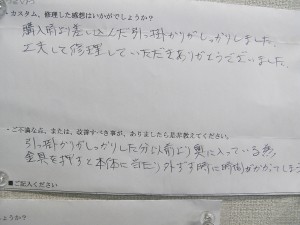 ・カスタム、修理した感想はいかがでしょうか?
購入前より差し込んだ引っ掛かりがしっかりしました。
工夫して修理していただきありがとうございました。
・ご不満な点、または、改善すべき事が、ありましたら是非教えてください。
引っ掛かりがしっかりした分以前より奥に入っている為
金具を押すと本体に当たり外す時に時間がかかってしまう
■ご記入ください
しょうか?